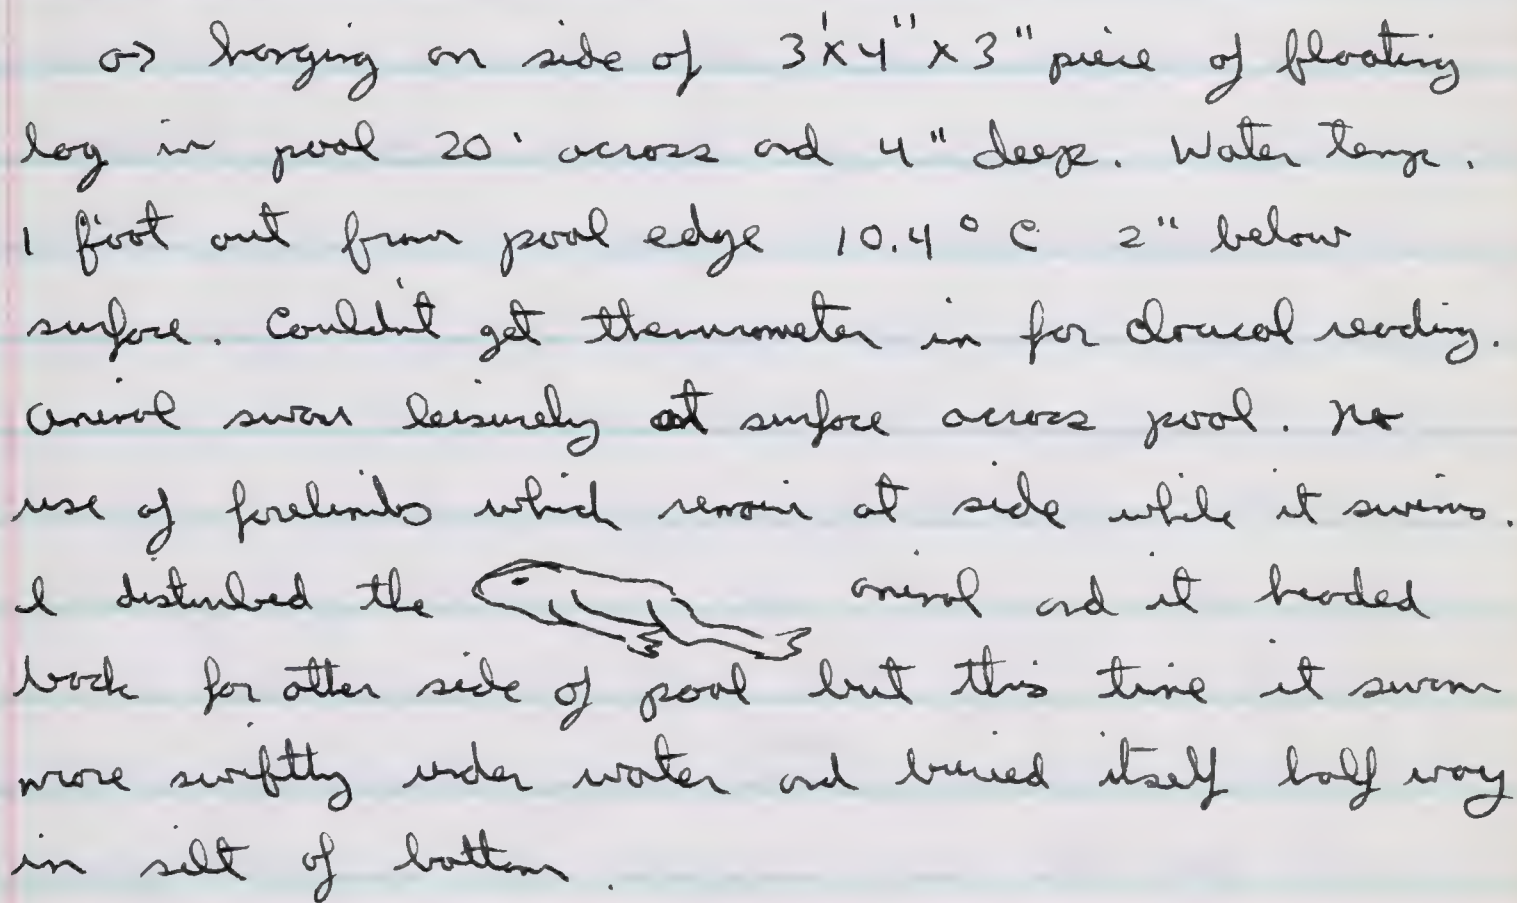 ♂ hanging on side of 3'x4"x3" piece of floating
log in pool 20' across and 4" deep. Water temp.
1 foot out from pool edge 10.4° C 2" below
surface. Couldn't get thermometer in for cloacal reading.
Animal swam leisurely at surface across pool. No
use of forelimbs which remain at side while it swims.
I disturbed the animal and it headed
back for other side of pool but this time it swam
more swiftly under water and buried itself half way
in silt of bottom.